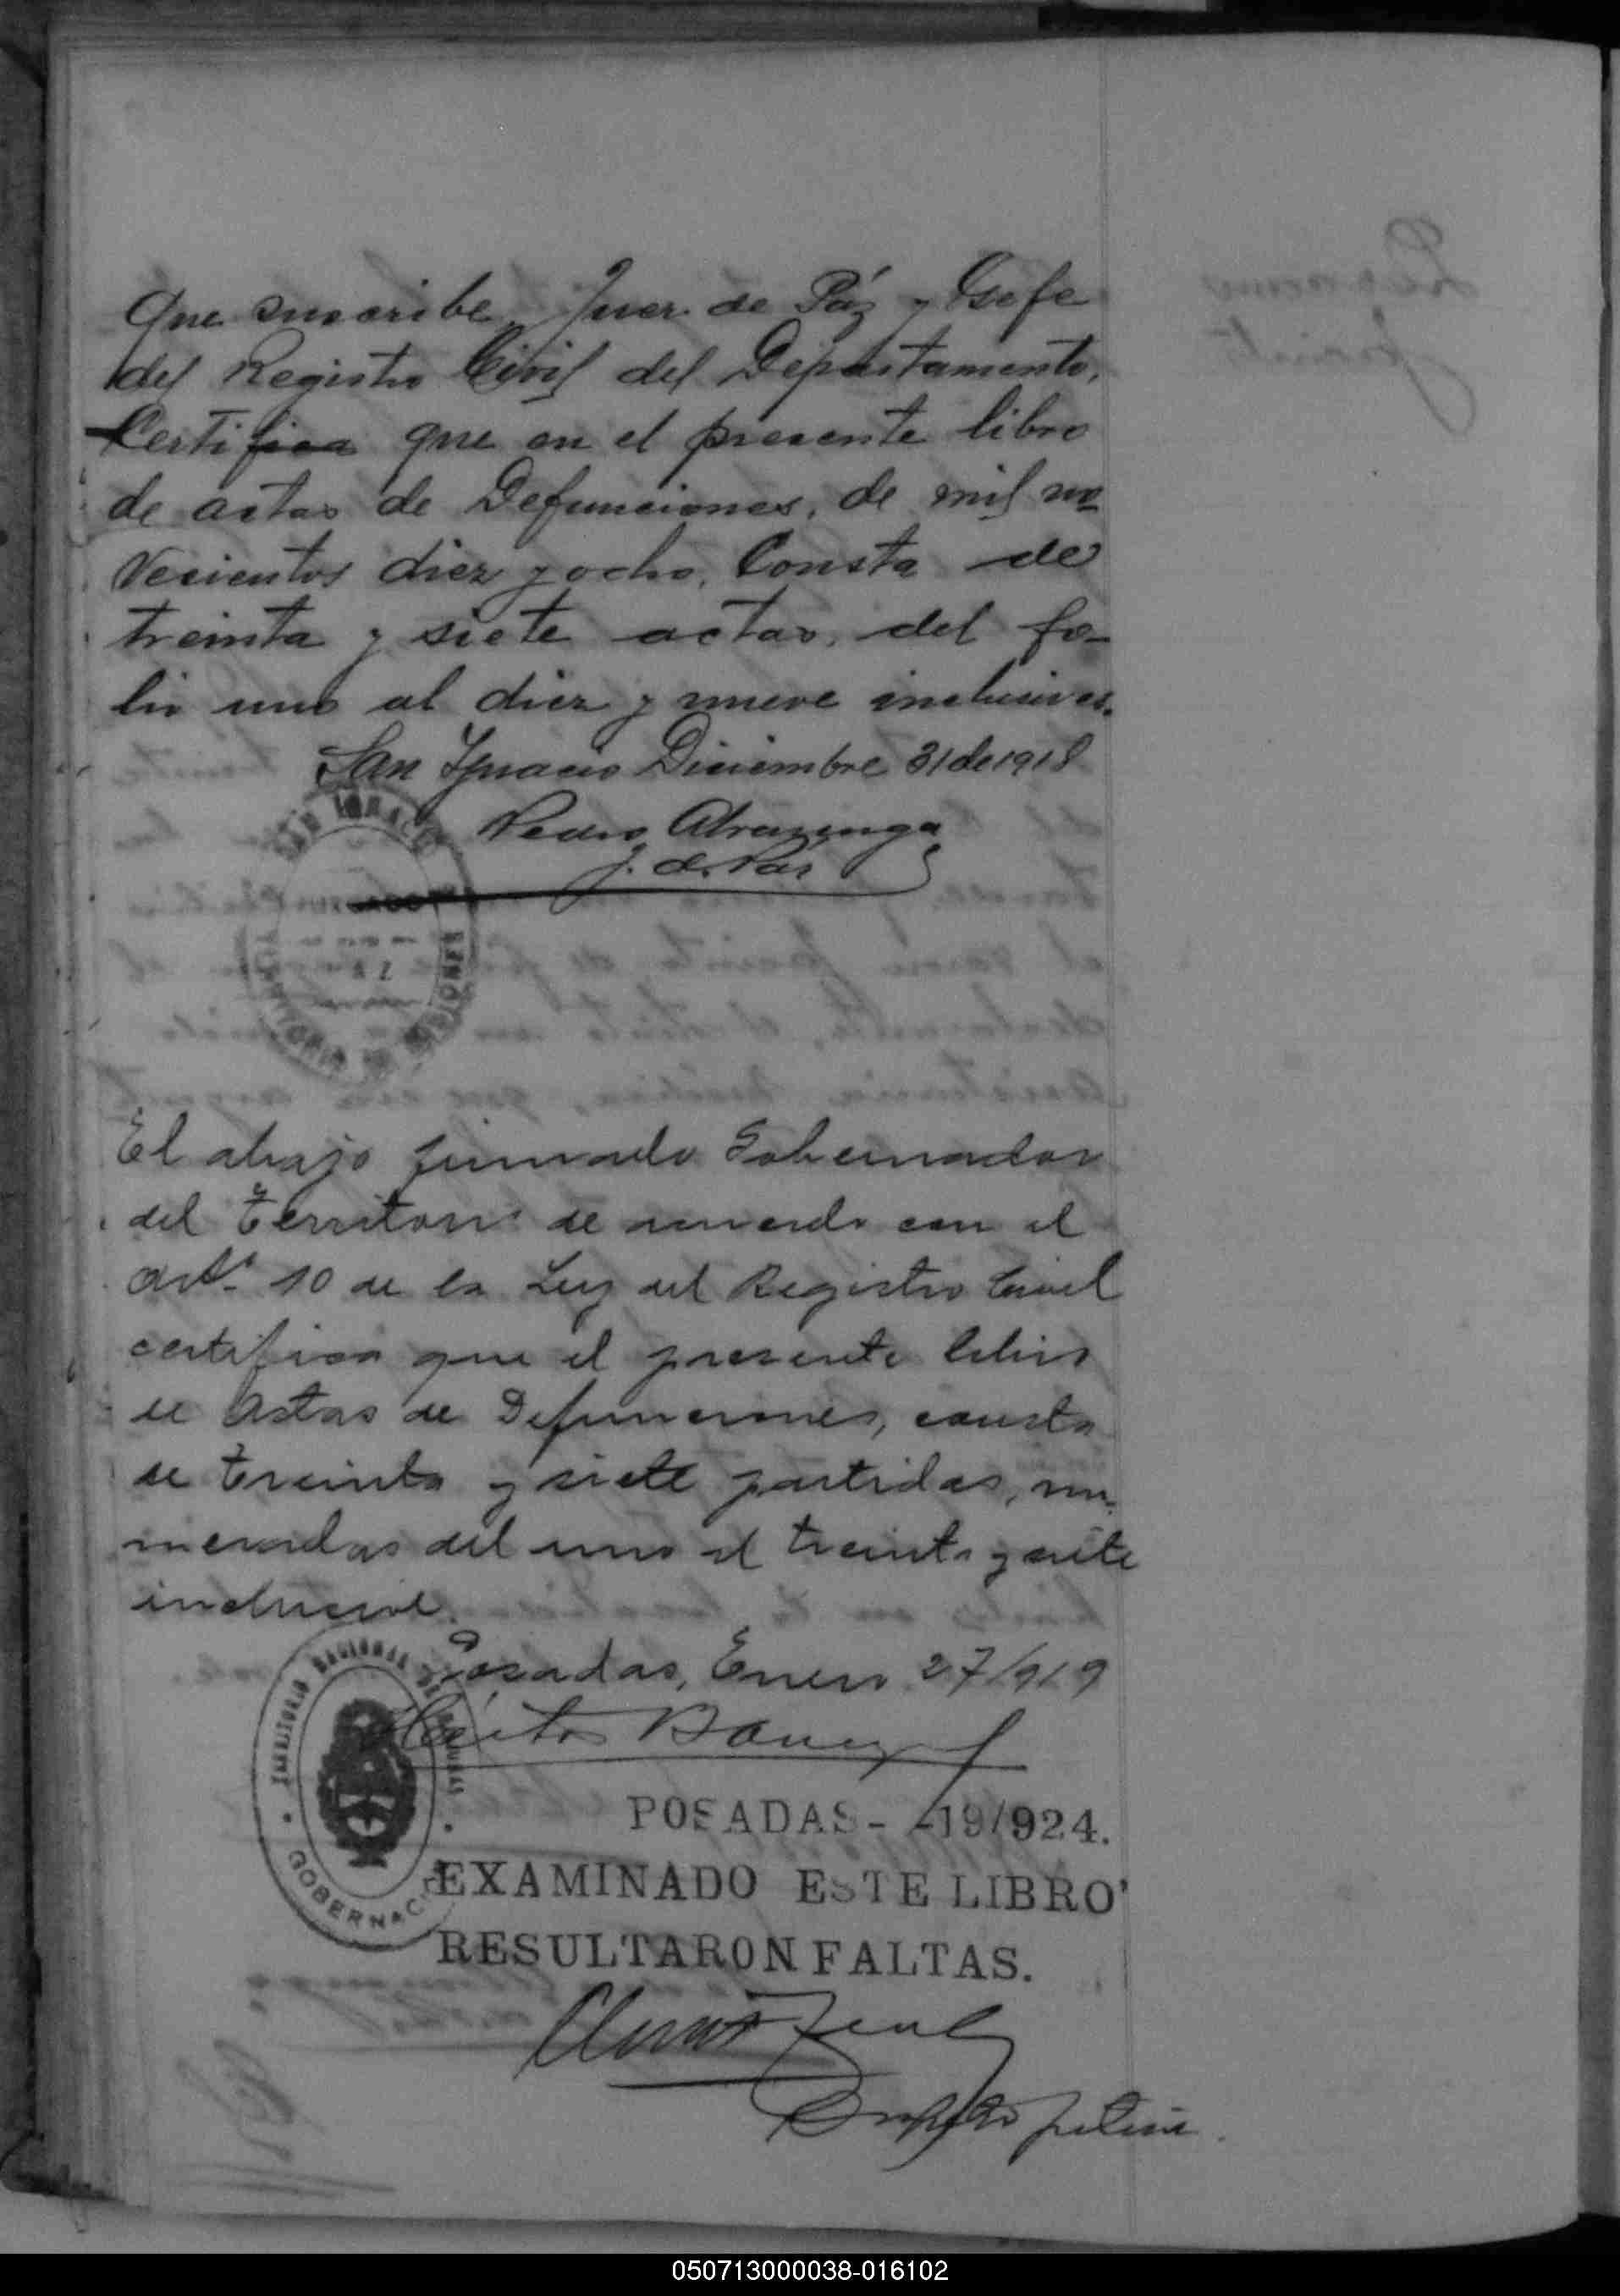 Que suscribe Juez de Páz y Gefe
del Registro Civil del Departamento,
Certifica que en el presente libro
de actas de Defunciones, de mil no
vecientos diez y ocho, Consta de
treinta y siete actas, del fo-
lio uno al diez y nueve inclusives.
San Ignacio Diciembre 31 de 1918
Pedro
J. de Paz
SAN IGNACIO
TERRITORIO DE MISIONES
El abajo firmado Gobernador
del Territorio de acuerdo con el
Art. 10 de la Ley del Registro Civil
certifica que el presente libro
de Actas de Defunciones, consta
de treinta y siete partidas, nu-
meradas del uno al treinta y siete
inclusive.
Posadas, Enero 27/919
TERRITORIO NACIONAL DE MISIONES
GOBERNACION
POSADAS- -19/924.
EXAMINADO ESTE LIBRO
RESULTARON FALTAS.
050713000038-016102